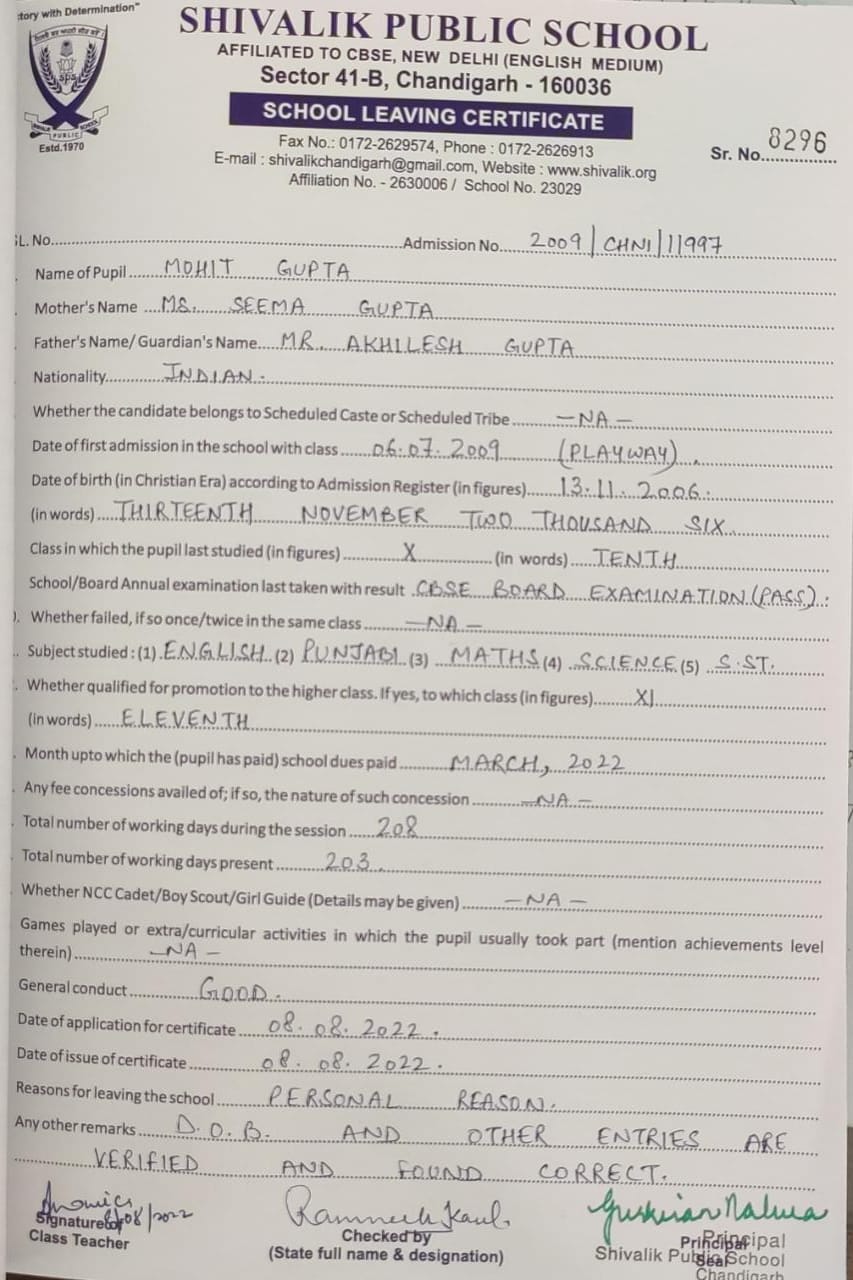 tory with Determination"
SHIVALIK PUBLIC SCHOOL
AFFILIATED TO CBSE, NEW DELHI (ENGLISH MEDIUM)
Sector 41-B, Chandigarh - 160036
SCHOOL LEAVING CERTIFICATE
Estd.1970
Fax No.: 0172-2629574, Phone : 0172-2626913
E-mail : shivalikchandigarh@gmail.com, Website : www.shivalik.org
Affiliation No. - 2630006 / School No. 23029
Sr. No. 8296
SL. No. Admission No. 2009/CHNI/11997
Name of Pupil MOHIT GUPTA
Mother's Name MS. SEEMA GUPTA
Father's Name/ Guardian's Name MR. AKHILESH GUPTA
Nationality INDIAN.
Whether the candidate belongs to Scheduled Caste or Scheduled Tribe -NA-
Date of first admission in the school with class 06.07.2009 (PLAYWAY).
Date of birth (in Christian Era) according to Admission Register (in figures) 13.11.2006.
(in words) THIRTEENTH NOVEMBER TWO THOUSAND SIX
Class in which the pupil last studied (in figures) X (in words) TENTH
School/Board Annual examination last taken with result CBSE BOARD EXAMINATION (PASS).
Whether failed, if so once/twice in the same class -NA-
Subject studied : (1) ENGLISH (2) PUNJABI (3) MATHS (4) SCIENCE (5) S.ST.
Whether qualified for promotion to the higher class. If yes, to which class (in figures) XI
(in words) ELEVENTH
Month upto which the (pupil has paid) school dues paid MARCH, 2022
Any fee concessions availed of; if so, the nature of such concession -NA-
Total number of working days during the session 208
Total number of working days present 203.
Whether NCC Cadet/Boy Scout/Girl Guide (Details may be given) -NA-
Games played or extra/curricular activities in which the pupil usually took part (mention achievements level
therein) -NA-
General conduct GOOD.
Date of application for certificate 08.08.2022.
Date of issue of certificate 08.08.2022.
Reasons for leaving the school PERSONAL REASON.
Any other remarks D.O.B. AND OTHER ENTRIES ARE
VERIFIED AND FOUND CORRECT.
8/08/2022
Signature of
Class Teacher
Checked by
(State full name & designation)
Principal
Seal
Principal
Shivalik Public School
Chandigarh